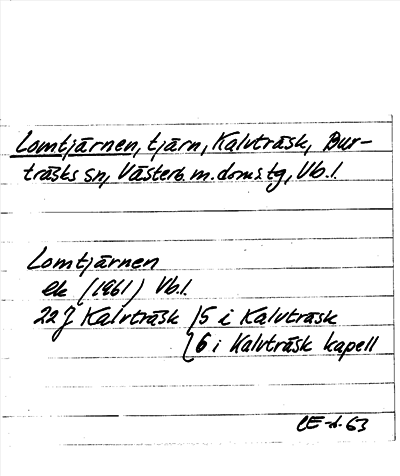 Lomtjärnen, tjärn, Kalvträsk, Bur-
träsks sn, Västerb. m. doms.tg, Vb.l.
Lomtjärnen
ek (1961) Vb.l.
22 J Kalvträsk { 5 i Kalvträsk
6 i Kalvträsk kapell
CE-d. 63